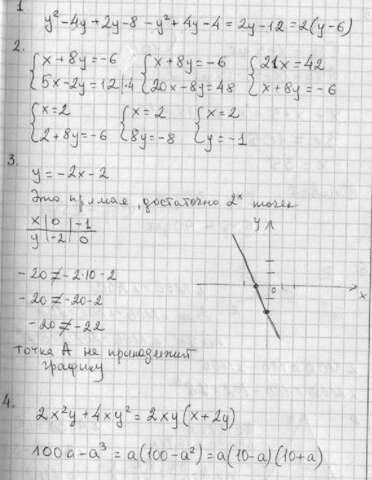 1
y²-4y+2y-8-y²+4y-4=2y-12=2(y-6)
2.
{x+8y=-6 {x+8y=-6 {21x=42
{5x-2y=12|·4 {20x-8y=48 {x+8y=-6
{x=2 {x=2 {x=2
{2+8y=-6 {8y=-8 {y=-1
3.
y=-2x-2
Это прямая, достаточно 2ˣ точек
x|0|-1
y|-2|0
y
x
0
-20≠-2·10-2
-20≠-20-2
-20≠-22
точка А не принадлежит
графику
4.
2x²y+4xy²=2xy(x+2y)
100a-a³=a(100-a²)=a(10-a)(10+a)